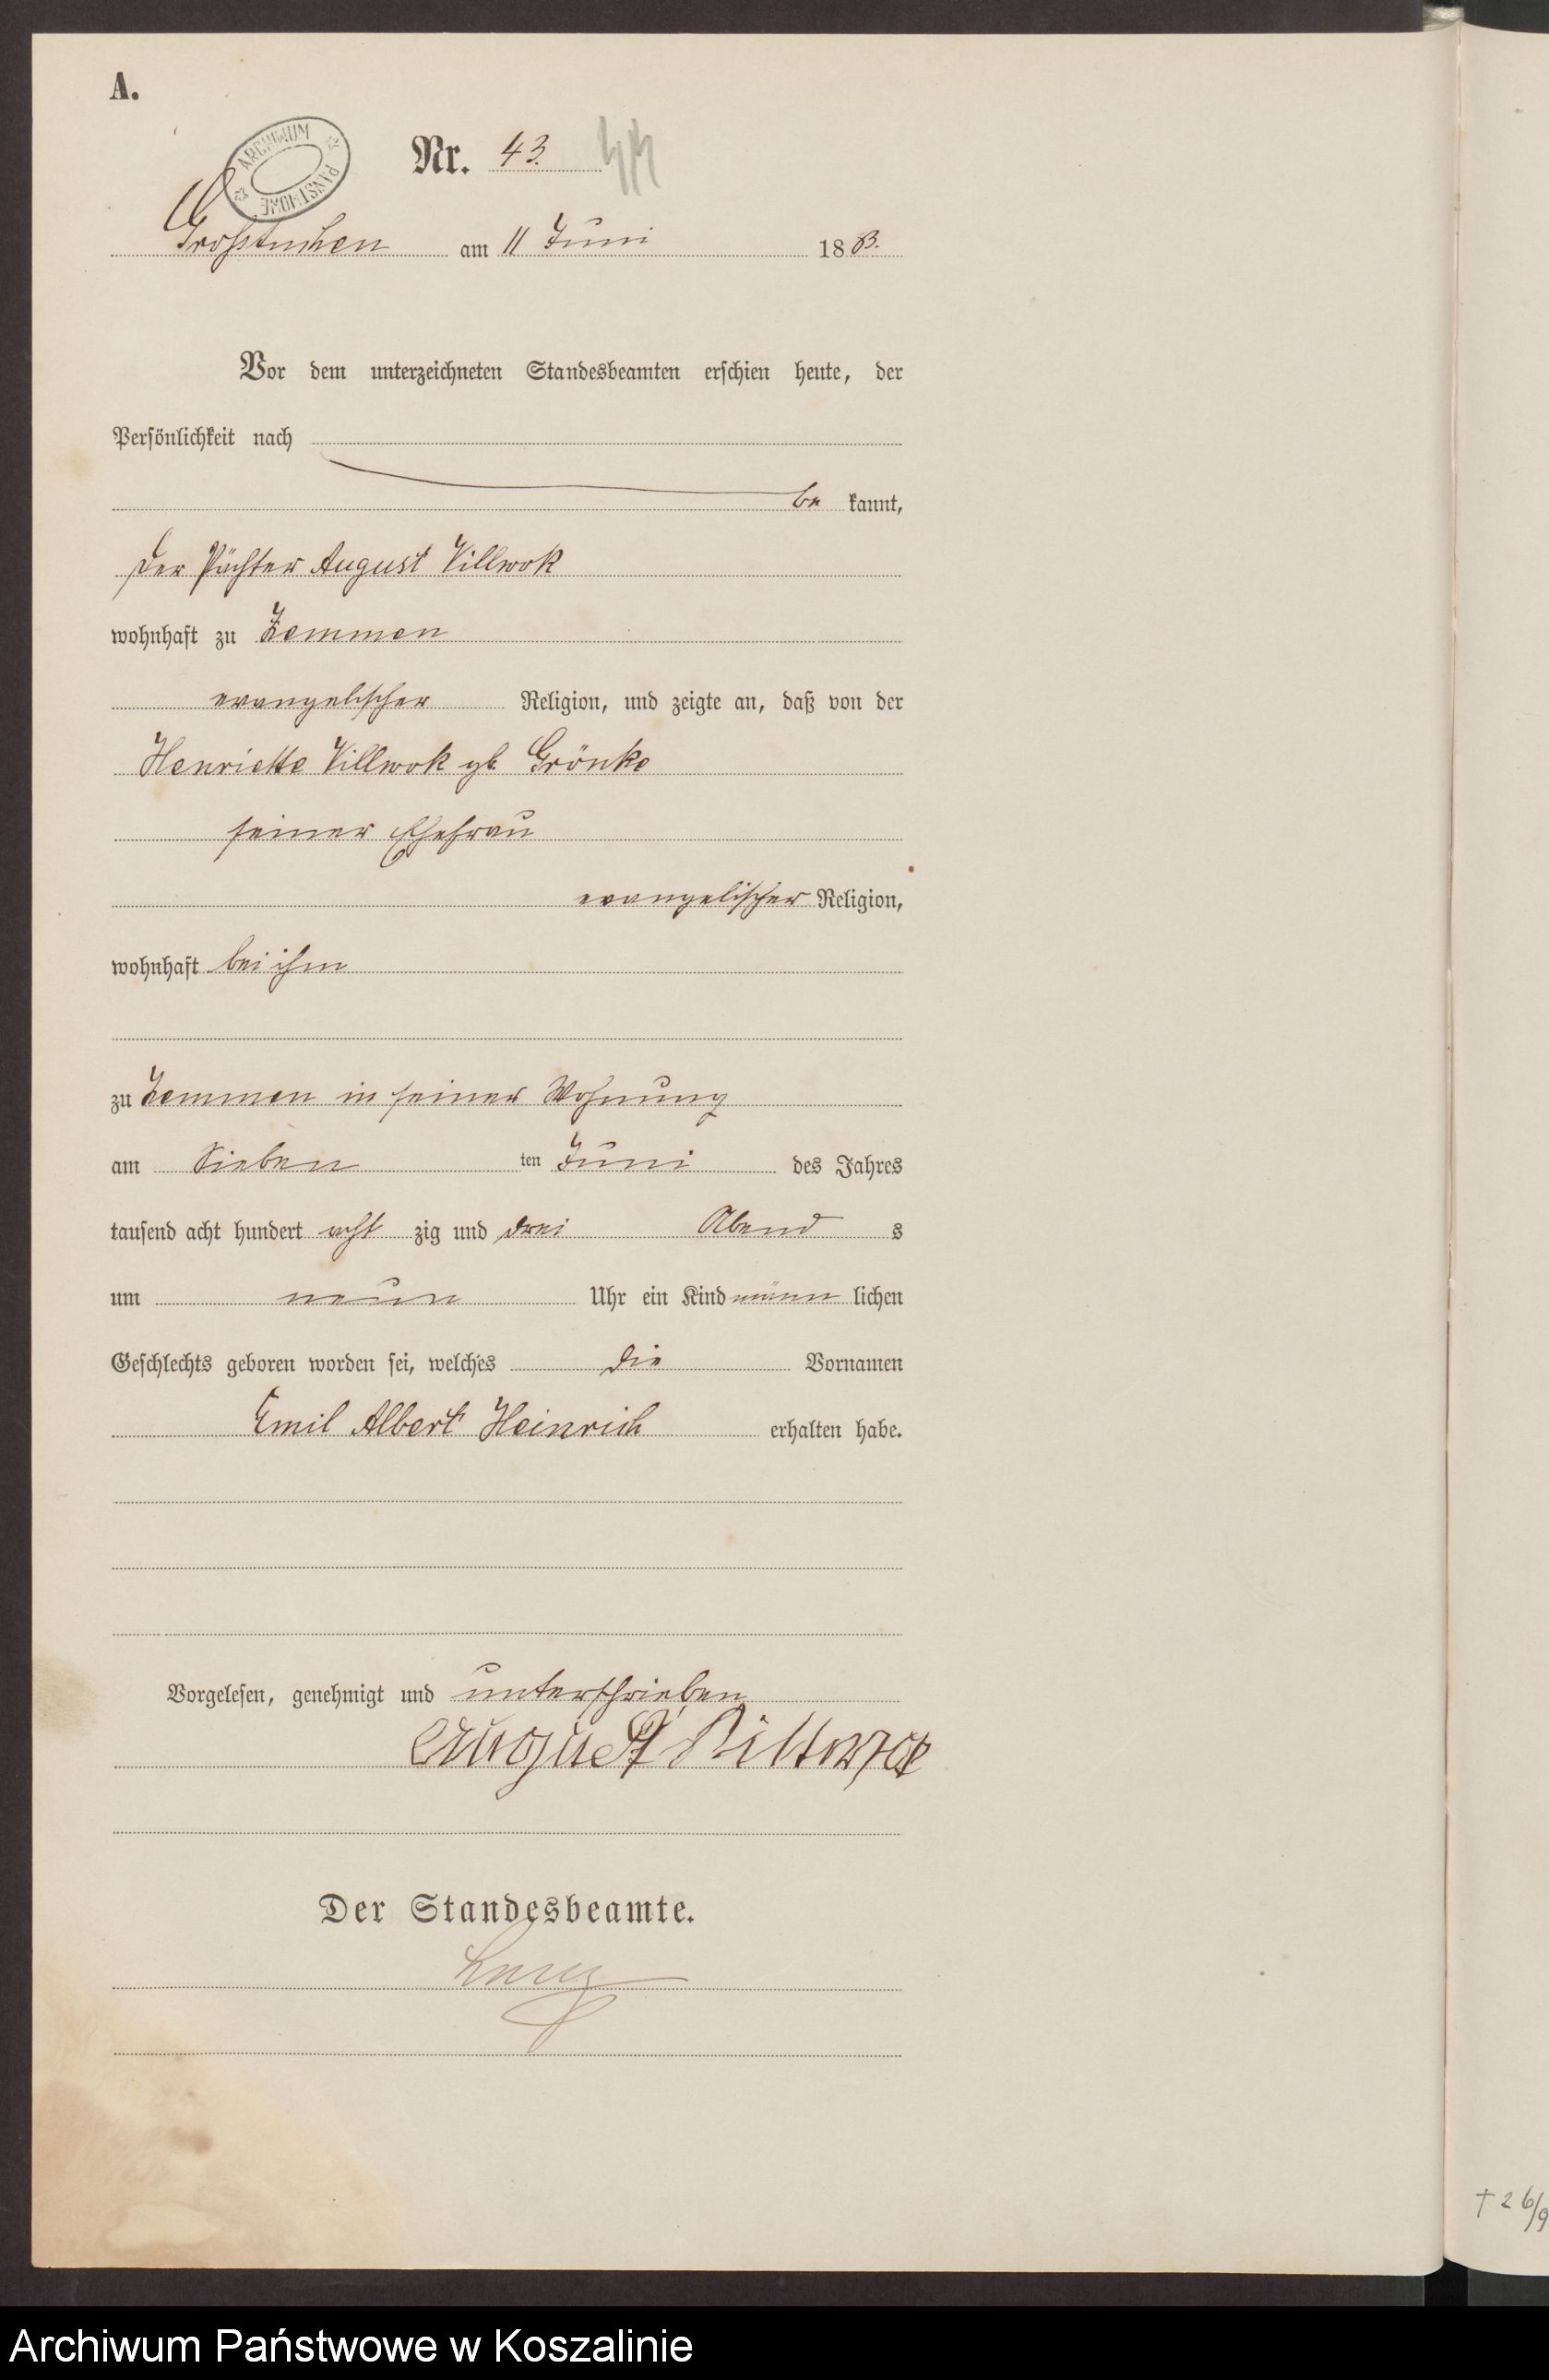 A.
ARCHIWUM PAŃSTWOWE
Nr. 43.
Großtuchen am 11 Juni 1883.
Vor dem unterzeichneten Standesbeamten erschien heute, der
Persönlichkeit nach
be kannt,
der Pächter August Villwok
wohnhaft zu Zemmen
evangelischer Religion, und zeigte an, daß von der
Henriette Villwok gb. Grönke
seiner Ehefrau
evangelischer Religion,
wohnhaft bei ihm
zu Zemmen in seiner Wohnung
am Sieben ten Juni des Jahres
tausend acht hundert acht zig und drei Abend s
um neun Uhr ein Kind männ lichen
Geschlechts geboren worden sei, welches die Vornamen
Emil Albert Heinrich erhalten habe.
Vorgelesen, genehmigt und unterschrieben
August
Der Standesbeamte.
† 26/9
Archiwum Państwowe w Koszalinie